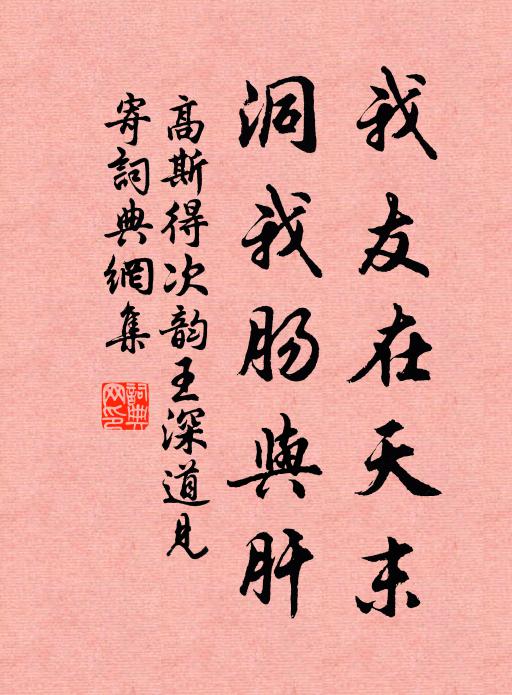 我友在天末
洞我肠與肝
高斯得次韵王深道見
寄詞典網集
詞典
网印